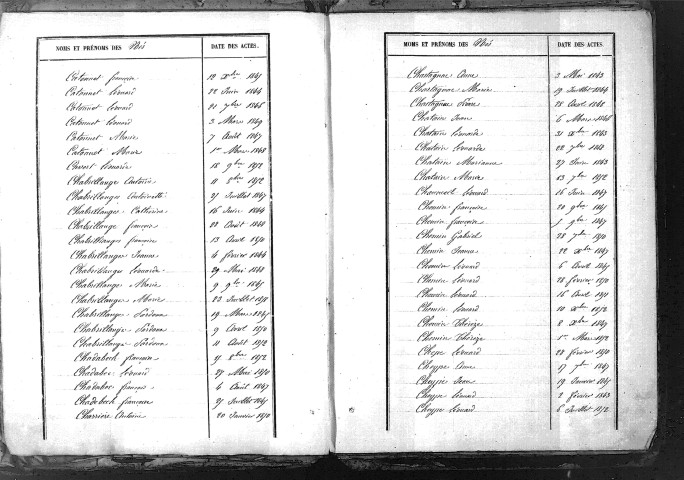 NOMS ET PRÉNOMS DES Nés DATE DES ACTES.
Catonnet françois 12 Xbre 184
Catonnet Léonard 22 Juin 1844
Catonnet Léonard 21 7bre 1846
Catonnet Léonard 3 Mars 1849
Catonnet Marie 7 Août 1847
Catonnet Marie 1er Mars 1848
Léonarde 18 9bre 1852
Chabrillange Antoine 11 1852
Chabrillanges Antoinette 21 Juillet 1845
Chabrillanges Catherine 16 Juin 1844
Chabrillange françois 22 Août 1848
Chabrillanges françoise 13 Août 1850
Chabrillanges Jeanne 4 février 1844
Chabrillanges Léonarde 29 Mai 1848
Chabrillanges Marie 9 9bre 1845
Chabrillange Marie 23 Juillet 1850
Chabrillanges 19 Mars 1845
Chabrillange 9 Août 1850
Chabrillange 11 Août 1852
Chadabech françois 21 8bre 1852
Chadabec Léonard 27 Mai 1850
Chadabec françois 4 Août 1847
Chadebech françoise 21 Juillet 1845
Charrière Antoine 20 Janvier 1850
NOMS ET PRÉNOMS DES Nés DATE DES ACTES.
Chastagnac Anne 3 Mai 1843
Chastagnac Marie 19 Juillet 1844
Chastagnac 28 Août 1848
Chatain Jean 6 Mars 1846
Chatain Léonarde 31 Xbre 1843
Chatain Léonarde 22 7bre 1848
Chatain Marianne 27 Juin 1843
Chatain Marie 13 7bre 1852
Léonard 16 Juin 1847
Chemin françoise 20 9bre 184
Chemin françoise 5 9bre 1847
Chemin Gabriel 28 7bre 1850
Chemin Jeanne 22 Xbre 1847
Chemin Léonard 6 Août 184
Chemin Léonard 22 février 1850
Chemin Léonard 16 Août 185
Chemin Léonard 10 Xbre 1852
Chemin Thérèze 8 Xbre 1849
Chemin Thérèze 1er Mars 1852
Cheype Léonard 22 février 1850
Cheyppe Anne 17 7bre 1847
Cheyppe Jean 19 Janvier 184
Cheype Léonard 2 février 1843
Cheype Léonard 6 Juillet 1852